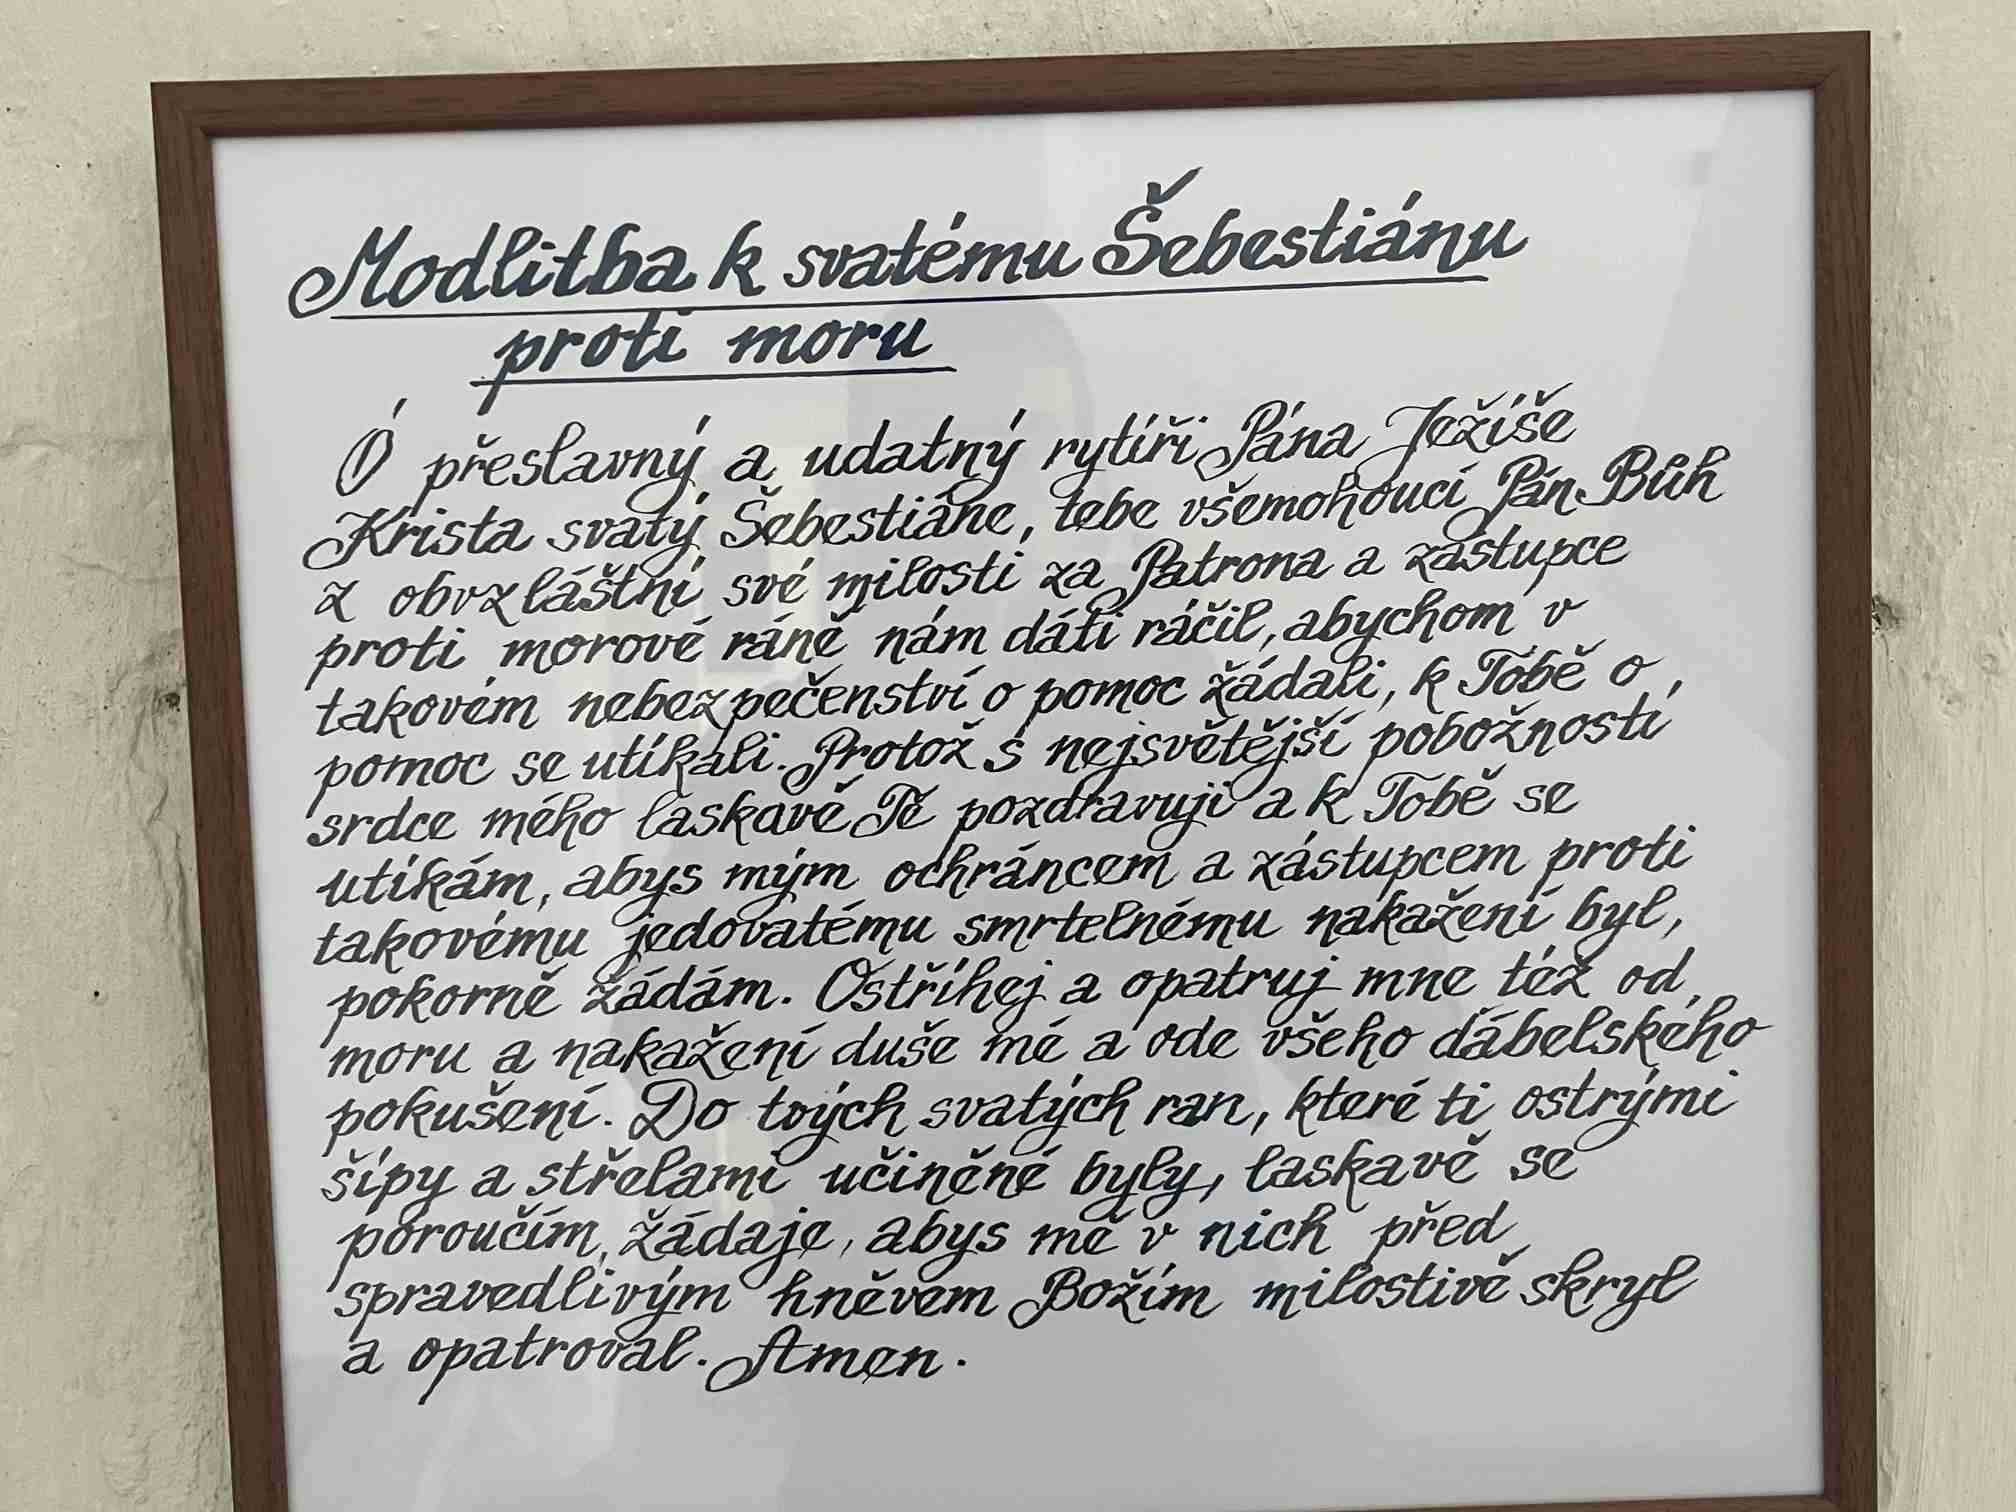 Modlitba k svatému Šebestiánu
proti moru
Ó přeslavný a udatný rytíři Pána Ježíše
Krista svatý Šebestiáne, tebe všemohoucí Pán Bůh
z obvzláštní své milosti za Patrona a zástupce
proti morové ráně nám dáti ráčil, abychom v
takovém nebezpečenství o pomoc žádali, k Tobě o
pomoc se utíkali. Protož s nejsvětější pobožností
srdce mého laskavě Tě pozdravuji a k Tobě se
utíkám, abys mým ochráncem a zástupcem proti
takovému jedovatému smrtelnému nakažení byl,
pokorně žádám. Ostříhej a opatruj mne též od
moru a nakažení duše mé a ode všeho ďábelského
pokušení. Do tvých svatých ran, které ti ostrými
šípy a střelami učiněné byly, laskavě se
poroučím, žádaje, abys mě v nich před
spravedlivým hněvem Božím milostivě skryl
a opatroval. Amen.